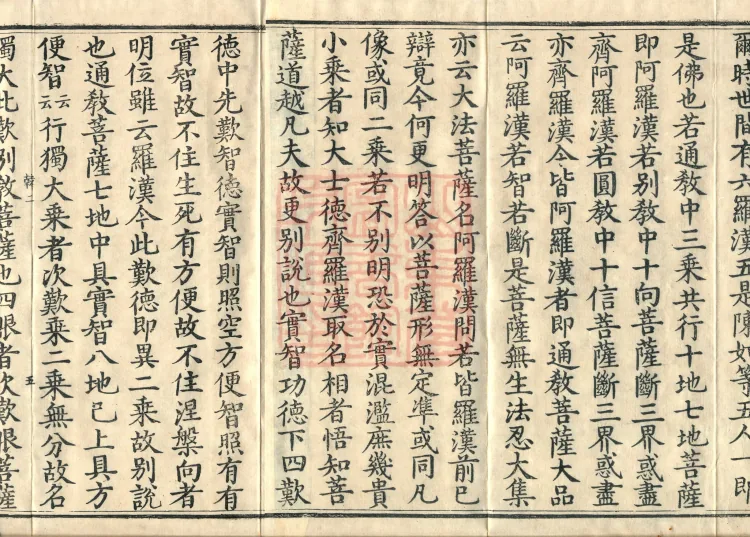 爾時世間有六羅漢五是陳如等五人一即
是佛也若通教中三乘共行十地七地菩薩
即阿羅漢若別教中十向菩薩斷三界惑盡
齊阿羅漢若圓教中十信菩薩斷三界惑盡
亦齊羅漢今皆阿羅漢者即通教菩薩大品
云阿羅漢若智若斷是菩薩無生法忍大集
亦云大法菩薩名阿羅漢問若皆羅漢前已
辯竟今何更明答以菩薩形無定準或同凡
像或同二乘若不別明恐於實混濫庶幾貴
小乘者知大士德齊羅漢取名相者悟知菩
薩道越凡夫故更別說也實智功德下四歎
德中先歎智德實智則照空方便智照有有
實智故不住生死有方便故不住涅槃向者
明位雖云羅漢今此歎德即異二乘故別說
也通教菩薩七地中具實智八地已上具方
便智云云行獨大乘者次歎乘二乘無分故名
獨大此歎別教菩薩也四眼者次歎眼菩薩
幹二
五